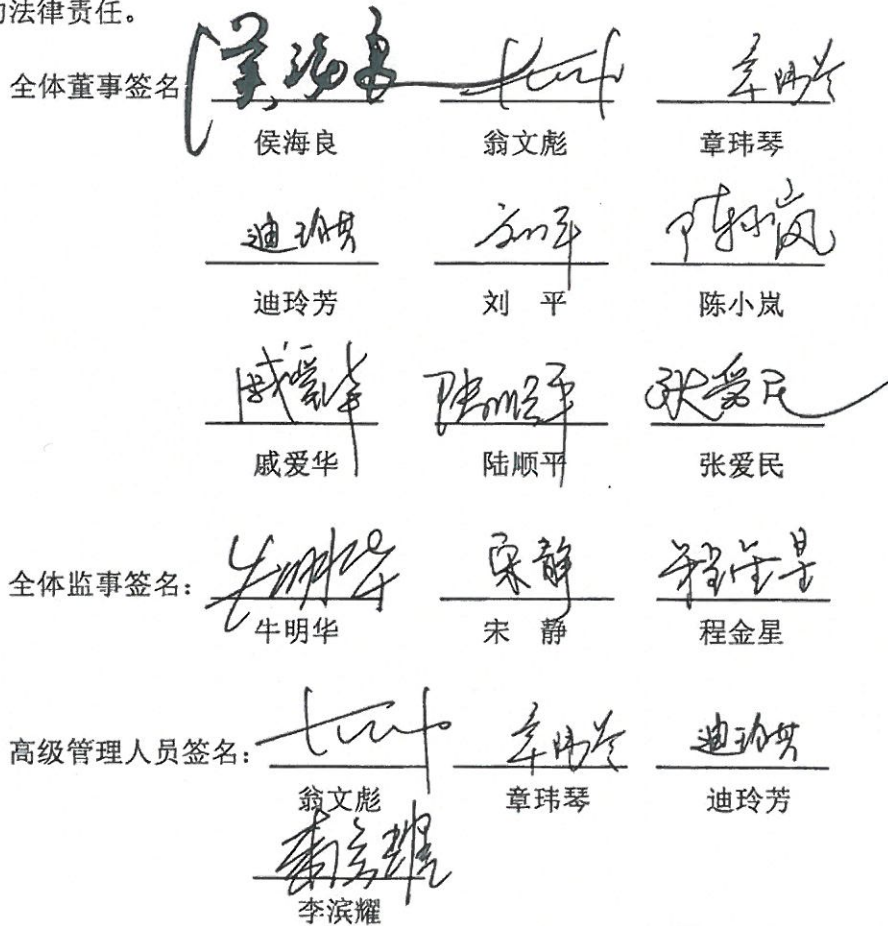 的法律责任。
全体董事签名
侯海良 翁文彪 章玮琴
迪玲芳 刘 平 陈小岚
戚爱华 陆顺平 张爱民
全体监事签名：
牛明华 宋 静 程金星
高级管理人员签名：
翁文彪 章玮琴 迪玲芳
李滨耀